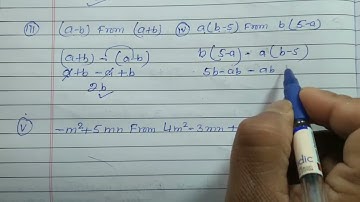 iii) (a-b) From (a+b) iv) a(b-5) From b(5-a)
(a+b) - (a-b)
a+b-a+b
2b
b(5-a) - a(b-5)
5b-ab-ab
v) -m²+5mn From 4m²-3mn+